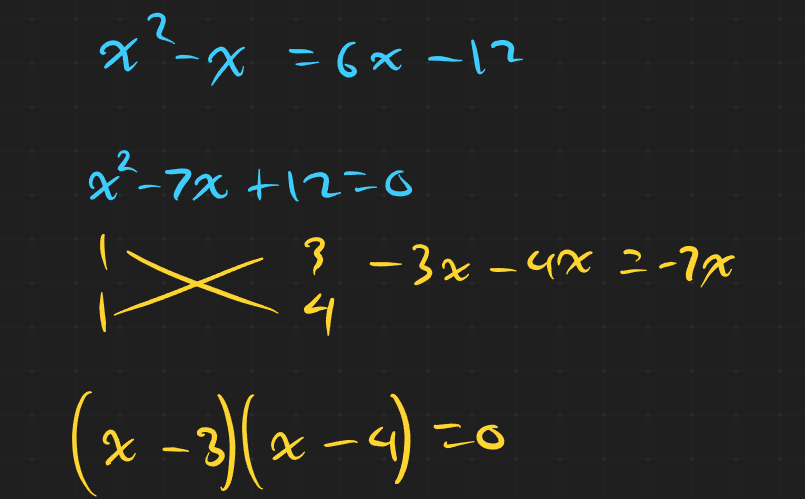 x² - x = 6x - 12
x² - 7x + 12 = 0
1 3 - 3x - 4x = -7x
1 4
(x - 3)(x - 4) = 0